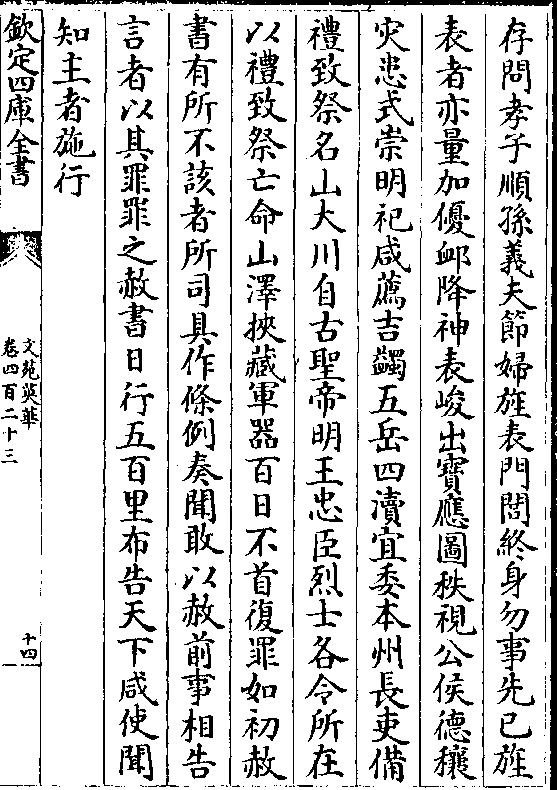 存問孝子順孫義夫節婦旌表門閭終身勿事先已旌
表者亦量加優卹降神表峻出寶應圖秩視公侯德穰
灾患式崇明祀咸薦吉蠲五岳四瀆宜委本州長吏備
禮致祭名山大川自古聖帝明王忠臣烈士各令所在
以禮致祭亡命山澤挾藏軍器百日不首復罪如初赦
書有所不該者所司具作條例奏聞敢以赦前事相告
言者以其罪罪之赦書日行五百里布告天下咸使聞
知主者施行
欽定四庫全書
文苑英華
卷四百二十三
十四